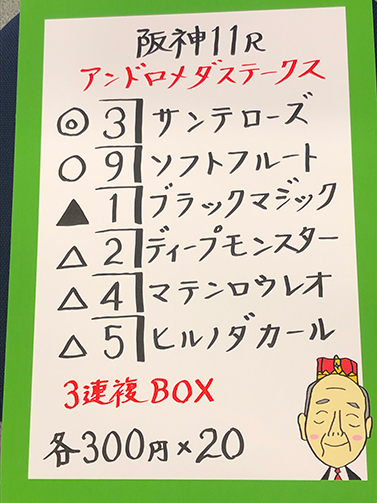 阪神11R
アンドロメダステークス
◎ 3 サンテローズ
○ 9 ソフトフルート
▲ 1 ブラックマジック
△ 2 ディープモンスター
△ 4 マテンロウレオ
△ 5 ヒルノダカール
3連複BOX
各300円×20